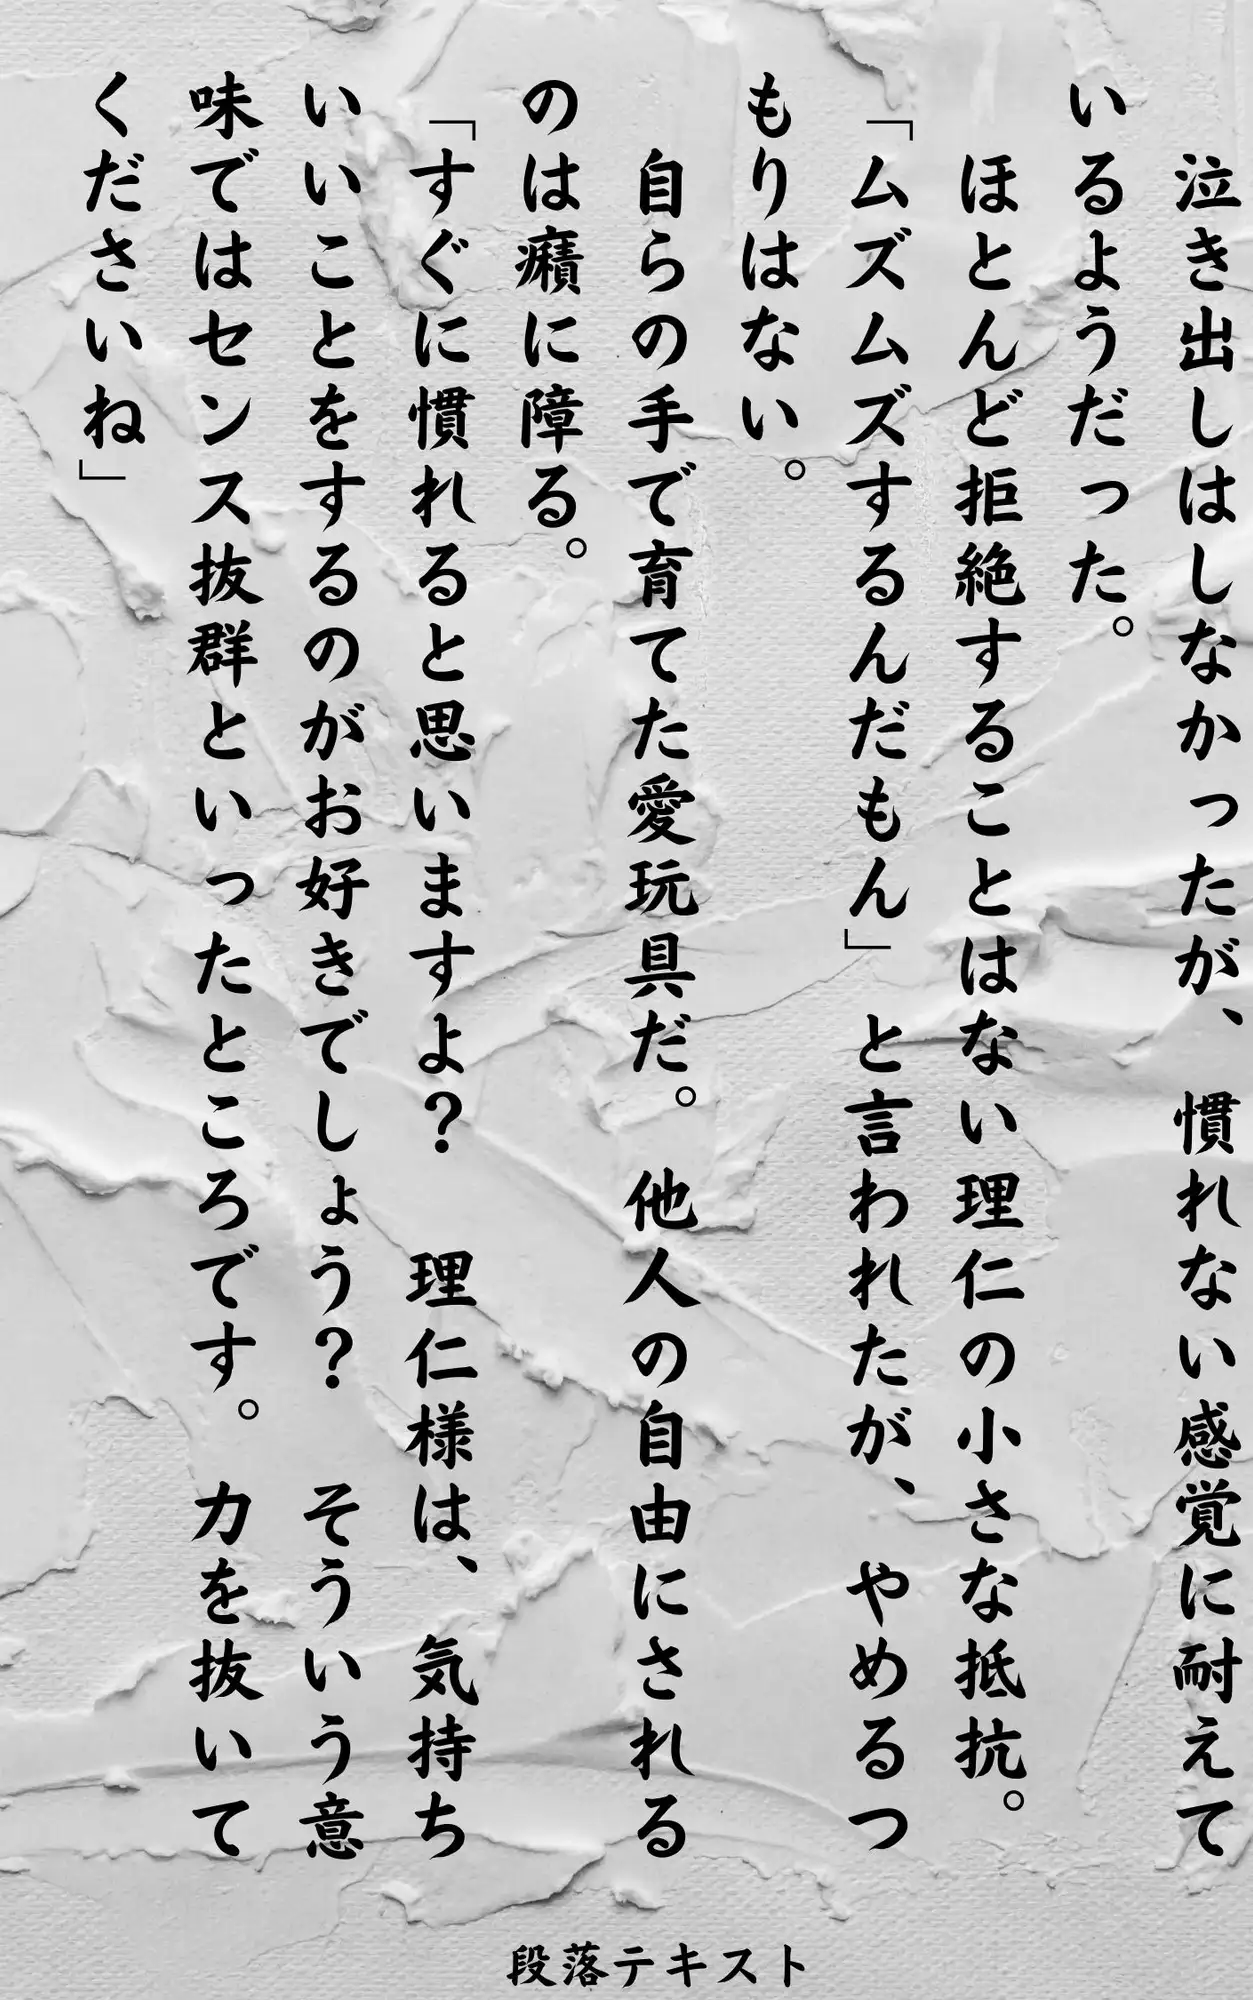 泣き出しはしなかったが、慣れない感覚に耐えて
いるようだった。
　ほとんど拒絶することはない理仁の小さな抵抗。
「ムズムズするんだもん」と言われたが、やめるつ
もりはない。
　自らの手で育てた愛玩具だ。他人の自由にされる
のは癪に障る。
「すぐに慣れると思いますよ？　理仁様は、気持ち
いいことをするのがお好きでしょう？　そういう意
味ではセンス抜群といったところです。力を抜いて
くださいね」
段落テキスト